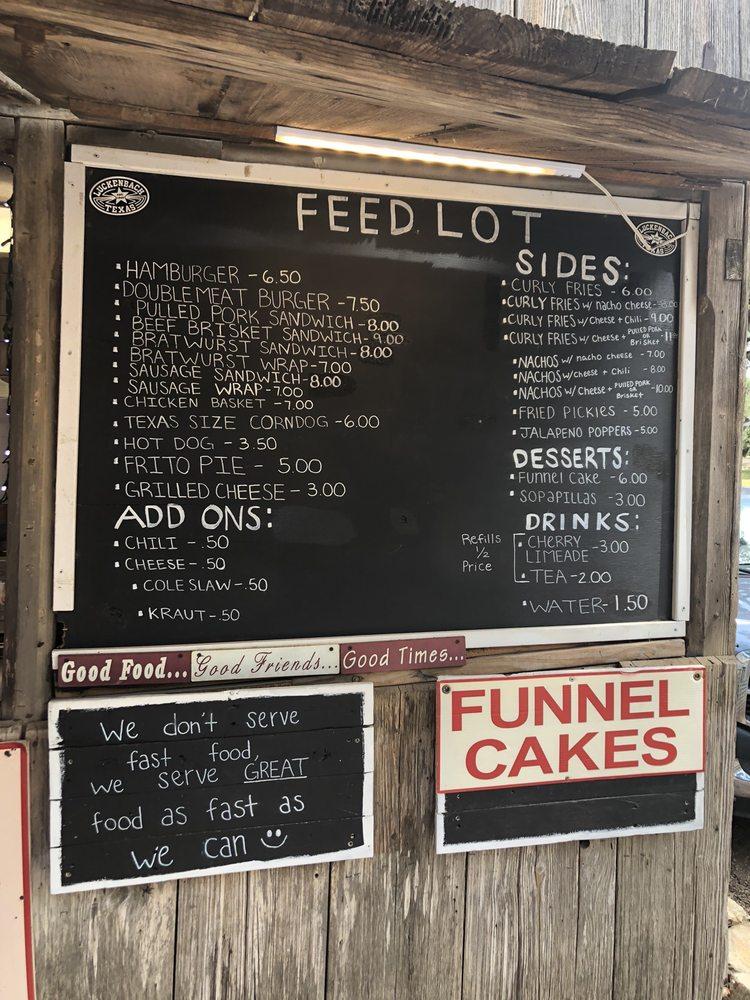 LUCKENBACH
TEXAS
FEED LOT
LUCKENBACH
TEXAS
• HAMBURGER - 6.50
• DOUBLEMEAT BURGER - 7.50
PULLED PORK SANDWICH - 8.00
BEEF BRISKET SANDWICH - 9.00
BRATWURST SANDWICH - 8.00
BRATWURST WRAP - 7.00
SAUSAGE SANDWICH - 8.00
SAUSAGE WRAP - 7.00
• CHICKEN BASKET - 7.00
• TEXAS SIZE CORNDOG - 6.00
• HOT DOG - 3.50
• FRITO PIE - 5.00
• GRILLED CHEESE - 3.00
ADD ONS:
• CHILI - .50
• CHEESE - .50
• COLE SLAW - .50
• KRAUT - .50
SIDES:
• CURLY FRIES - 6.00
• CURLY FRIES w/ nacho cheese -
• CURLY FRIES w/ Cheese + Chili - 9.00
• CURLY FRIES w/ Cheese + PULLED PORK OR Brisket -
• NACHOS w/ nacho cheese - 7.00
• NACHOS w/ Cheese + Chili - 8.00
• NACHOS w/ Cheese + PULLED PORK OR Brisket - 10.00
• FRIED PICKLES - 5.00
• JALAPENO POPPERS - 5.00
DESSERTS:
• Funnel Cake - 6.00
• SOPAPILLAS - 3.00
DRINKS:
Refills
1/2
Price
• CHERRY
LIMEADE - 3.00
• TEA - 2.00
• WATER - 1.50
Good Food... Good Friends... Good Times...
We don't serve
fast food,
we serve GREAT
food as fast as
we can ☺
FUNNEL
CAKES